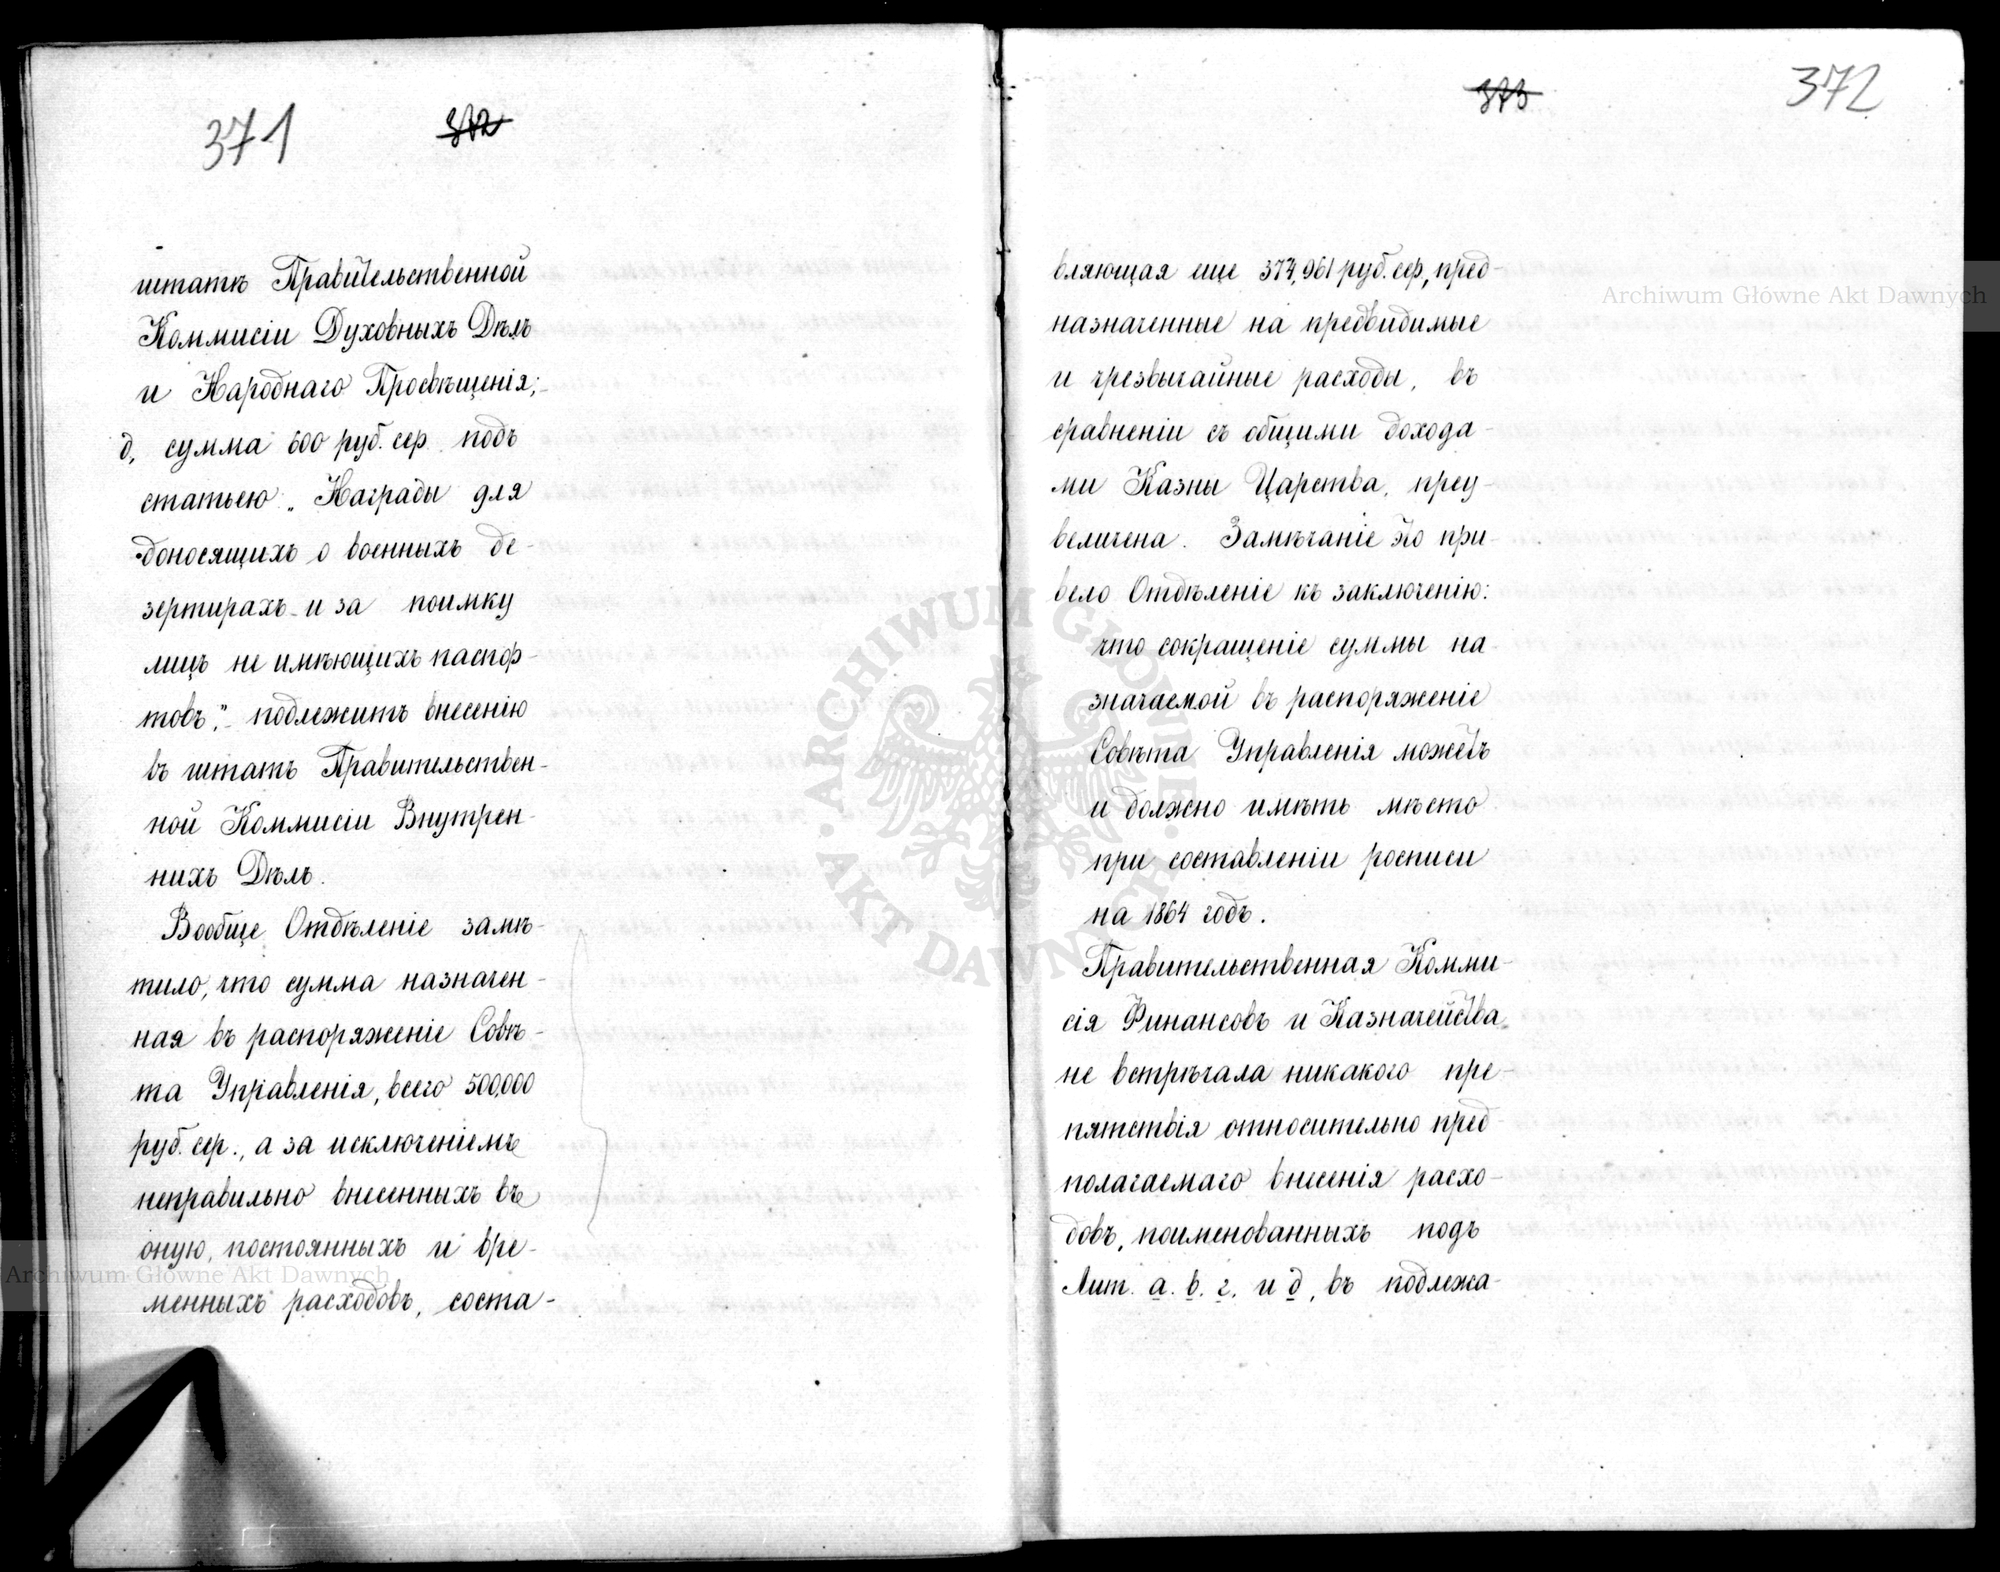 371
372
штатъ Правительственной
Коммисіи Духовныхъ Дѣлъ
и Народнаго Просвѣщенія;
д, сумма 600 руб. сер. подъ
статьею „Награды для
доносящихъ о военныхъ де-
зертирахъ и за поимку
лицъ не имѣющихъ паспор-
товъ", подлежитъ внесенію
въ штатъ Правительствен-
ной Коммисіи Внутрен-
нихъ Дѣлъ.
Вообще Отдѣленіе замѣ-
тило, что сумма назначен-
ная въ распоряженіе Совѣ-
та Управленія, всего 500,000
руб. сер., а за исключеніемъ
неправильно внесенныхъ въ
оную, постоянныхъ и вре-
менныхъ расходовъ, соста-
373
372
вляющая еще 374,961 руб. сер., пред-
назначенные на предвидимые
и чрезвычайные расходы, въ
сравненіи съ общими дохода-
ми Казны Царства, преу-
величена. Замѣчаніе это при-
вело Отдѣленіе къ заключенію:
что сокращеніе суммы на-
значаемой въ распоряженіе
Совѣта Управленія можетъ
и должно имѣть мѣсто
при составленіи росписи
на 1864 годъ.
Правительственная Комми-
сія Финансовъ и Казначейства
не встрѣчала никакого пре-
пятствія относительно пред-
полагаемаго внесенія расхо-
довъ, поименованныхъ подъ
Лит. а. в. г. и д, въ подлежа-
Archiwum Główne Akt Dawnych
Archiwum Główne Akt Dawnych
ARCHIWUM GŁÓWNE AKT DAWNYCH